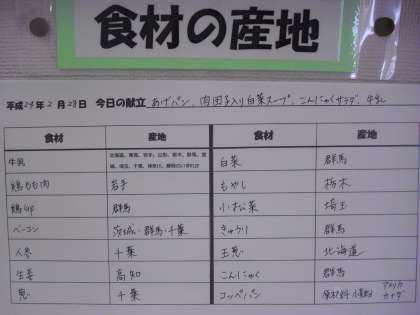 食材の産地
平成24年2月28日 今日の献立 あげパン、肉団子入り白菜スープ、こんにゃくサラダ、牛乳
食材 産地 食材 産地
牛乳 白菜 群馬
鶏もも肉 岩手 もやし 栃木
鶏卵 群馬 小松菜 埼玉
ベーコン 茨城・群馬・千葉 きゅうり 群馬
人参 千葉 玉葱 北海道
生姜 高知 こんにゃく 群馬
葱 千葉 コッペパン 原材料小麦粉 アメリカ カナダ